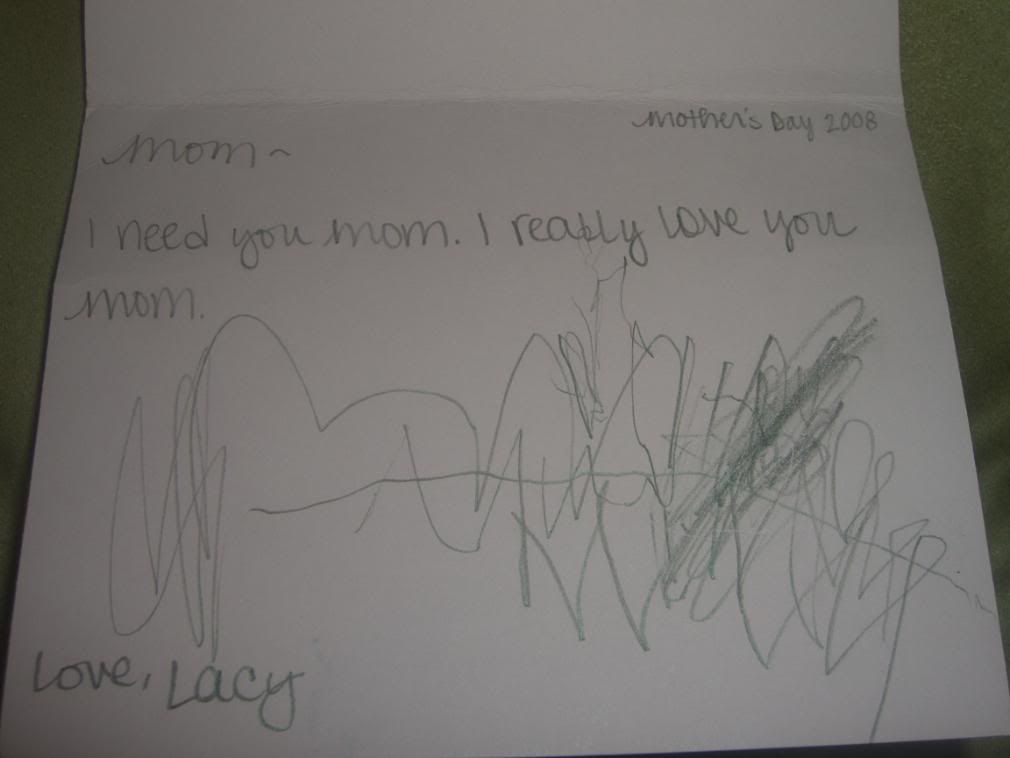 Mother's Day 2008
Mom~
I need you mom. I really love you
mom.
Love, Lacy